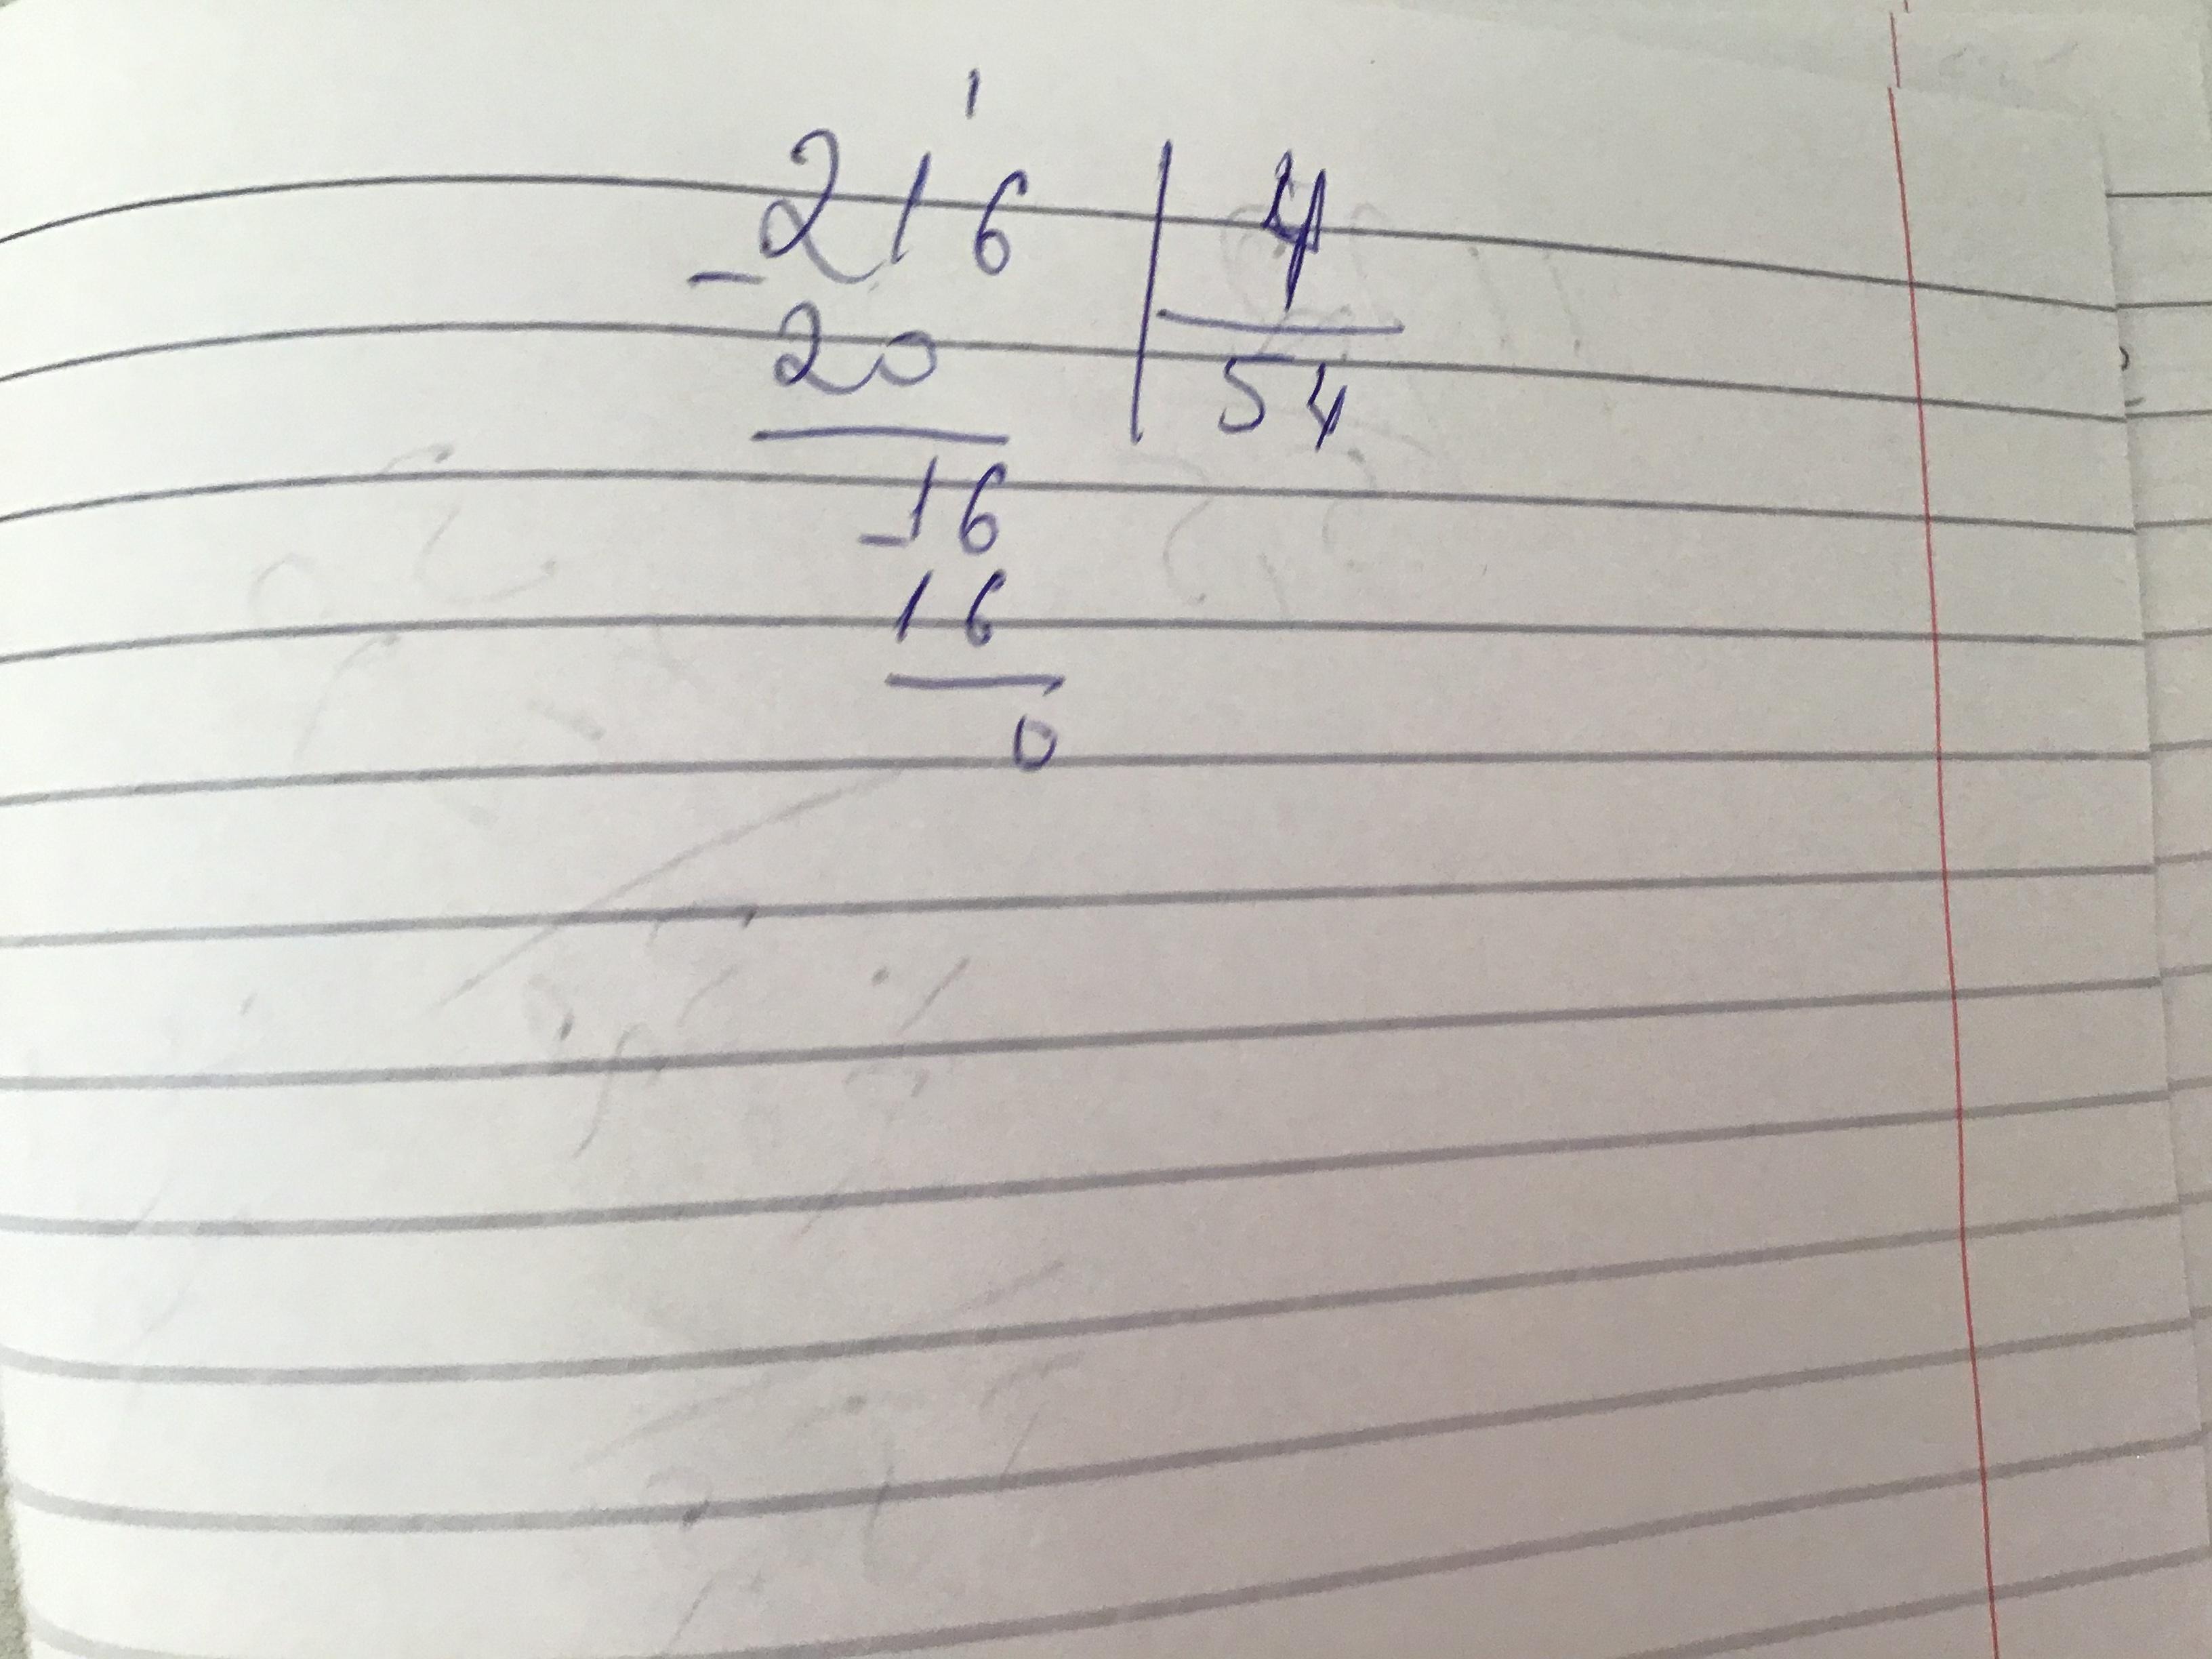 1
- 216 | 4
20 | 54
- 16
16
0